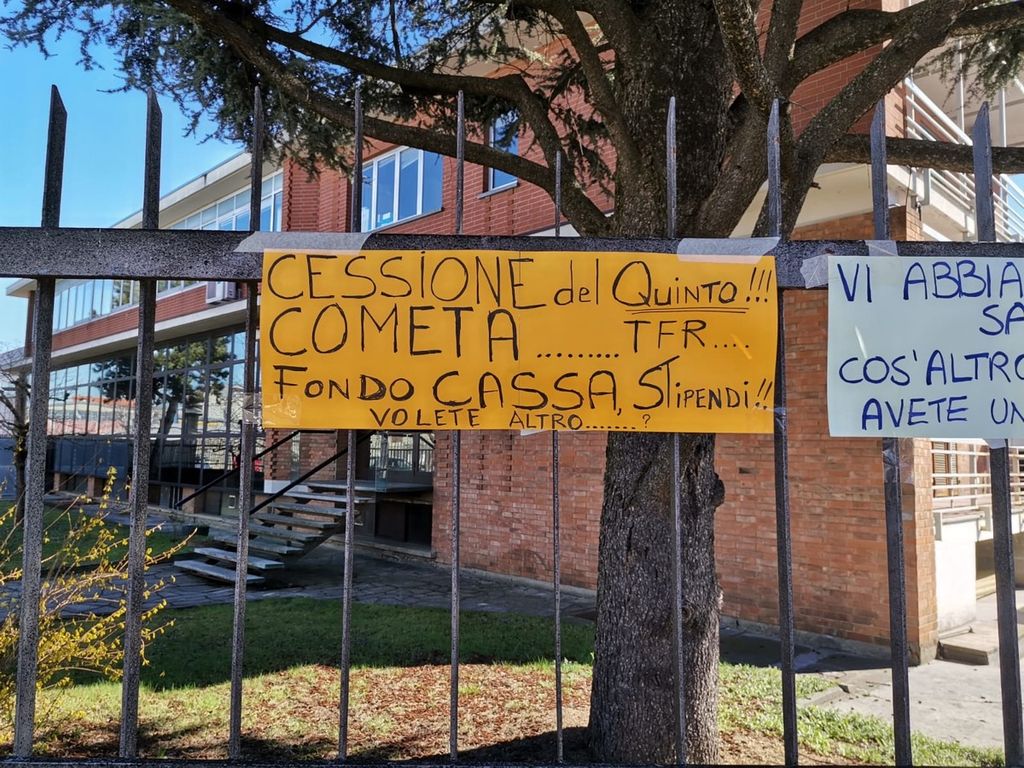 CESSIONE del QUINTO!!!
COMETA ......... TFR....
FONDO CASSA, STIPENDI!!
VOLETE ALTRO.......?
VI ABBIA
SA
COS'ALTRO
AVETE UN